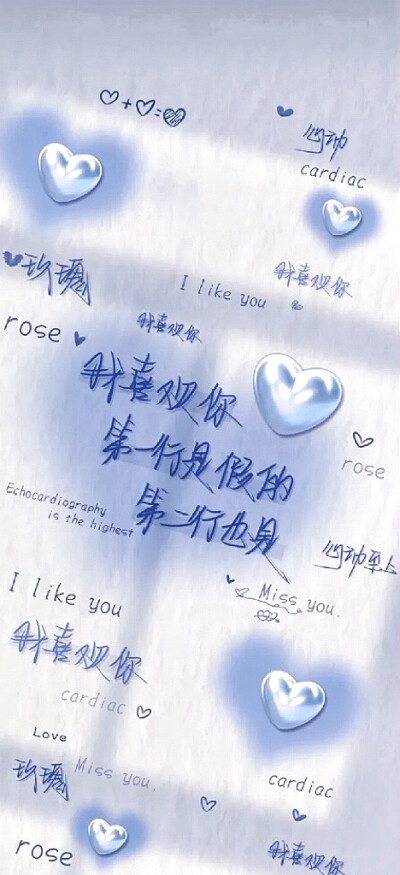 心动
cardiac
我喜欢你
玫瑰
I like you
我喜欢你
rose
我喜欢你
第一行是假的
第二行也是
rose
Echocardiography
is the highest
心动至上
I like you
Miss you.
我喜欢你
cardiac
Love
玫瑰
Miss you.
cardiac
rose
我喜欢你